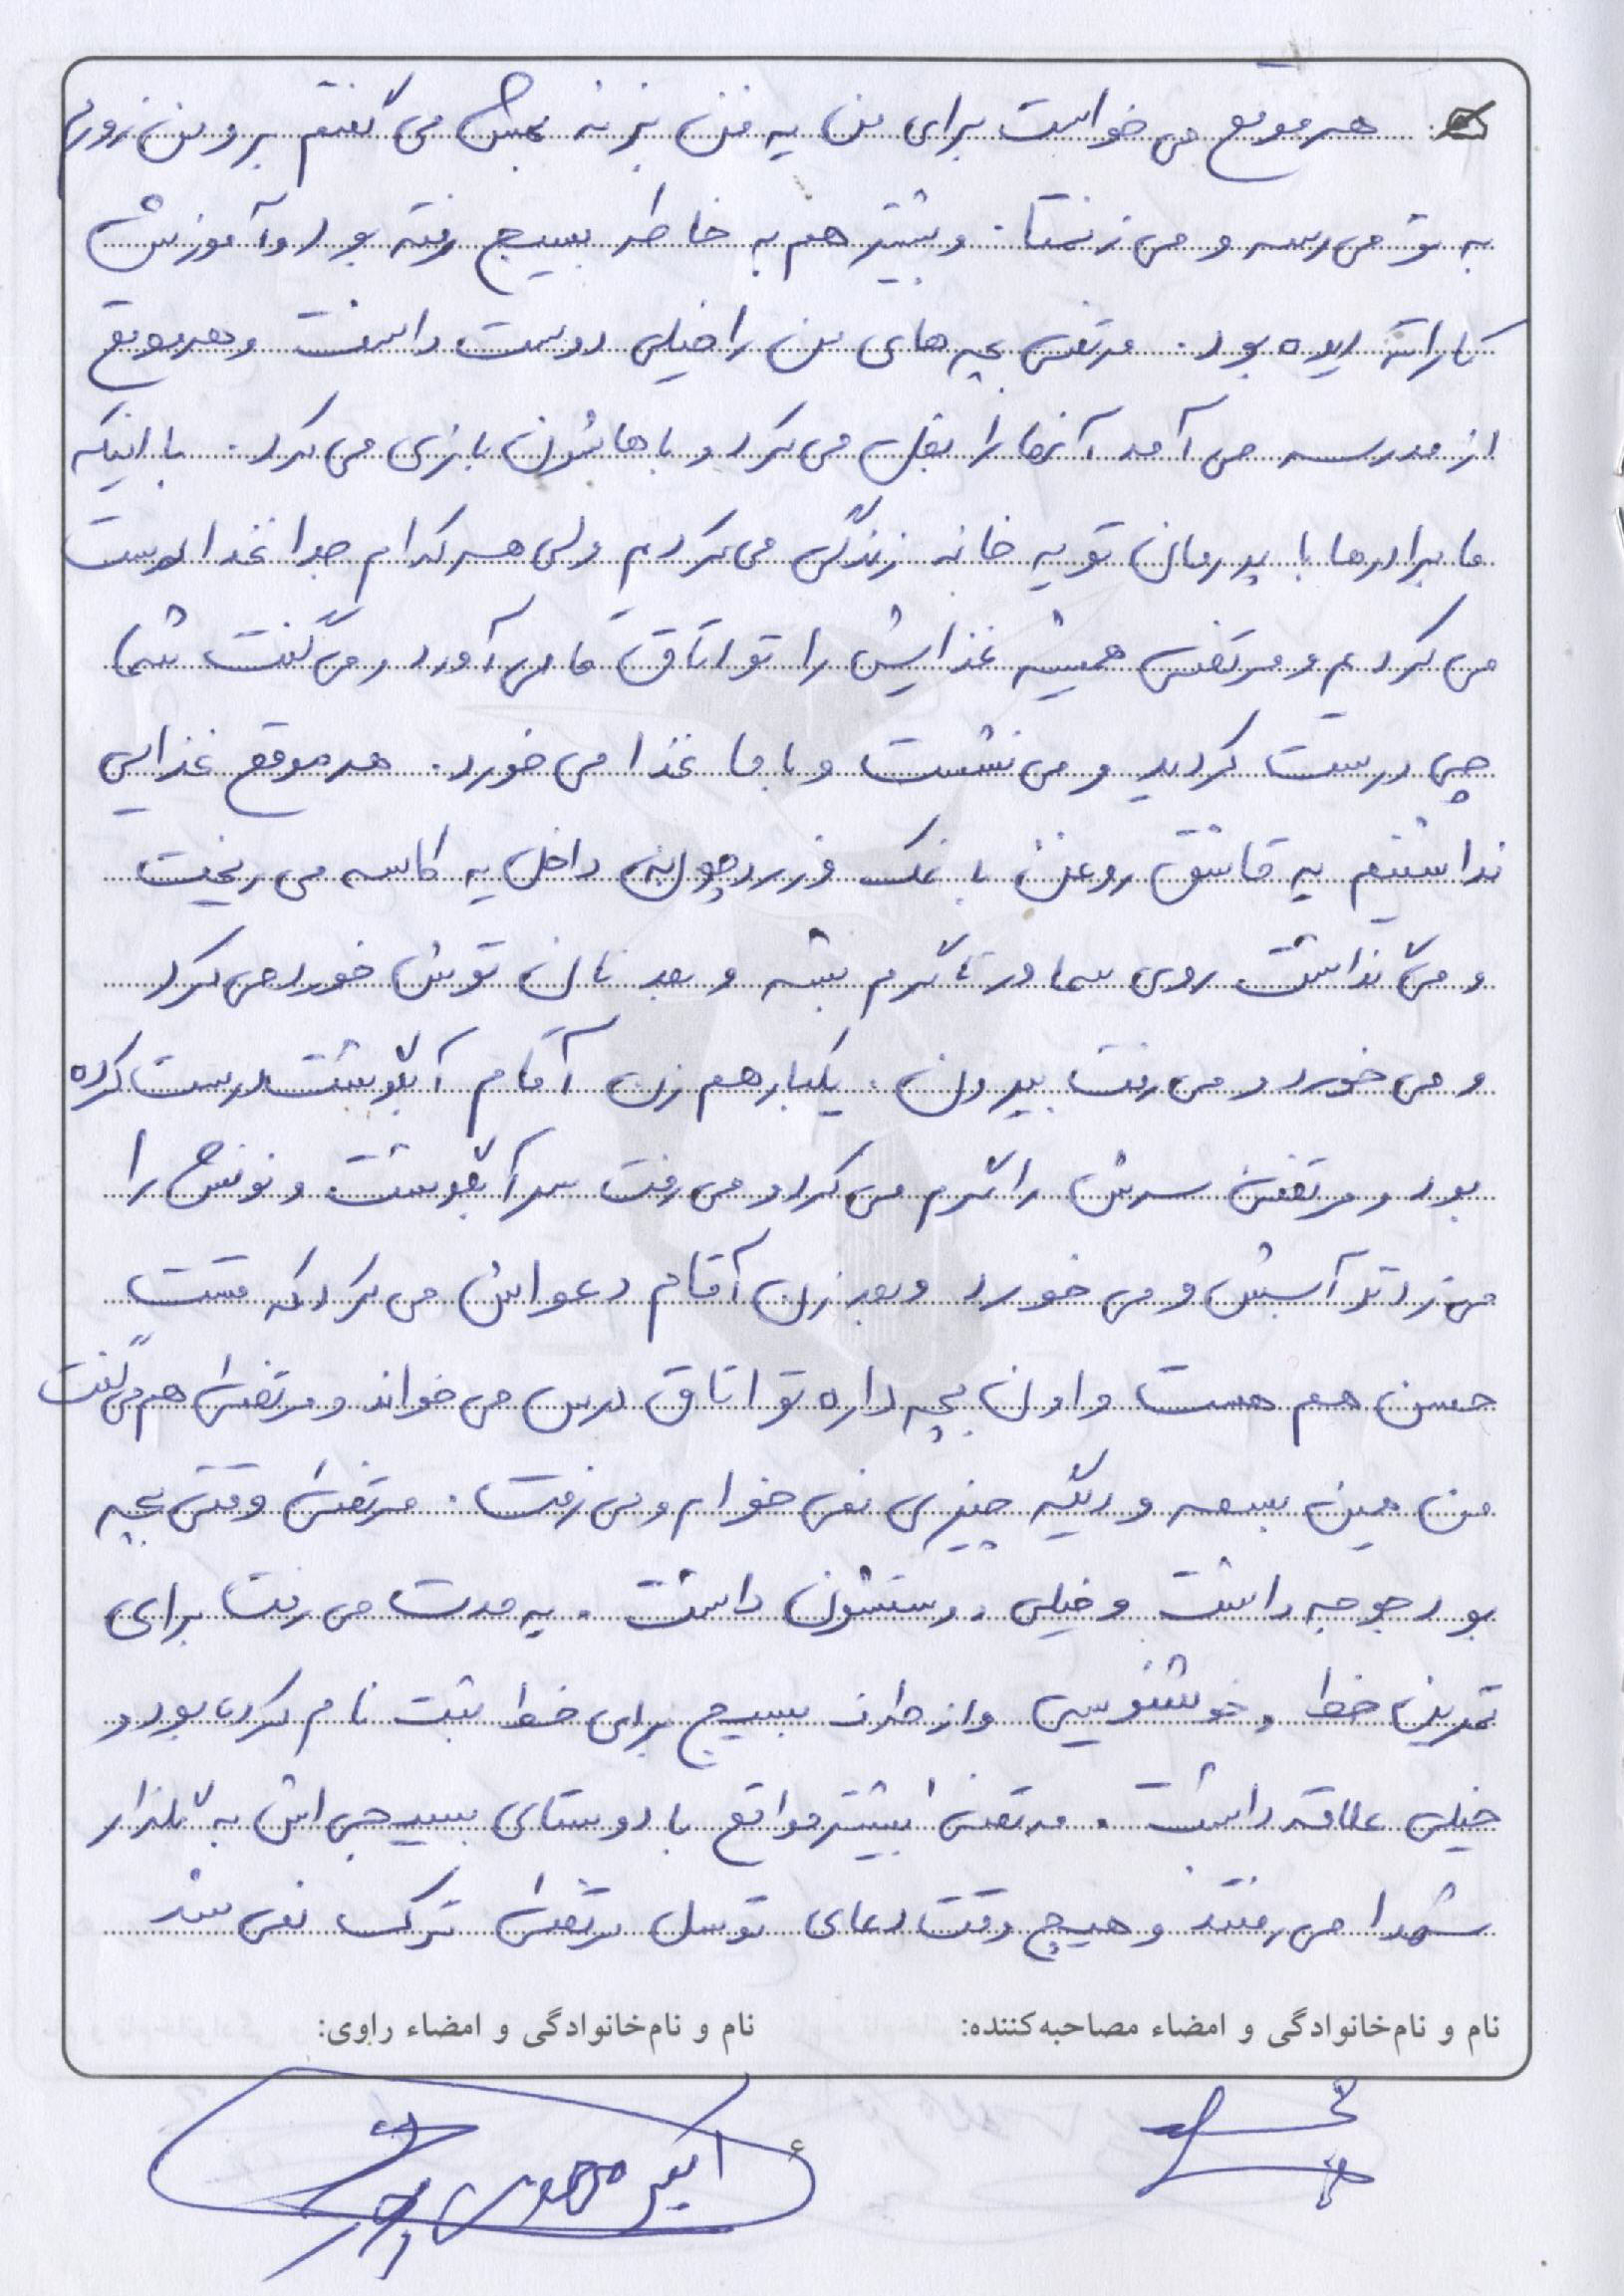 هر موقع می خواست برای من یه فن بزنه بهش می گفتم برو من زورم
به تو می رسه و می زنمتا. و بیشتر هم به خاطر بسیج رفته بود و آموزش
کاراته دیده بود. مرتضی بچه های من را خیلی دوست داشت و هر موقع
از مدرسه می آمد آنها را بغل می کرد و باهاشون بازی می کرد. با اینکه
ما برادرها با پدرمان تو یه خانه زندگی می کردیم ولی هر کدام جدا غذا درست
می کردیم و مرتضی همیشه غذایش را تو اتاق ما می آورد و می گفت شما
چی درست کردید و می نشست و با ما غذا می خورد. هر موقع غذایی
نداشتیم یه قاشق روغن با نمک و زردچوبه داخل یه کاسه می ریخت
و می گذاشت روی سماور تا گرم بشه و بعد نان توش خورد می کرد
و می خورد و می رفت بیرون. یکبار هم زن آقام آبگوشت درست کرده
بود و مرتضی سرش را گرم می کرد و می رفت سر آبگوشت و نونش را
می زد تو آبش و می خورد و بعد زن آقام دعواش می کرد که قسمت
حسن هم هست و اون بچه داره تو اتاق درس می خواند و مرتضی هم می گفت
من همین بسمه و دیگه چیزی نمی خوام و می رفت. مرتضی وقتی بچه
بود جوجه داشت و خیلی دوستشون داشت. یه مدت می رفت برای
تمرین خط و خوشنویسی و از طرف بسیج برای خط ثبت نام کرده بود و
خیلی علاقه داشت. مرتضی بیشتر مواقع با دوستای بسیجی اش به گلزار
شهدا می رفتند و هیچ وقت دعای توسل مرتضی ترک نمی شد
نام و نام‌خانوادگی و امضاء مصاحبه‌کننده:
نام و نام‌خانوادگی و امضاء راوی:
۶